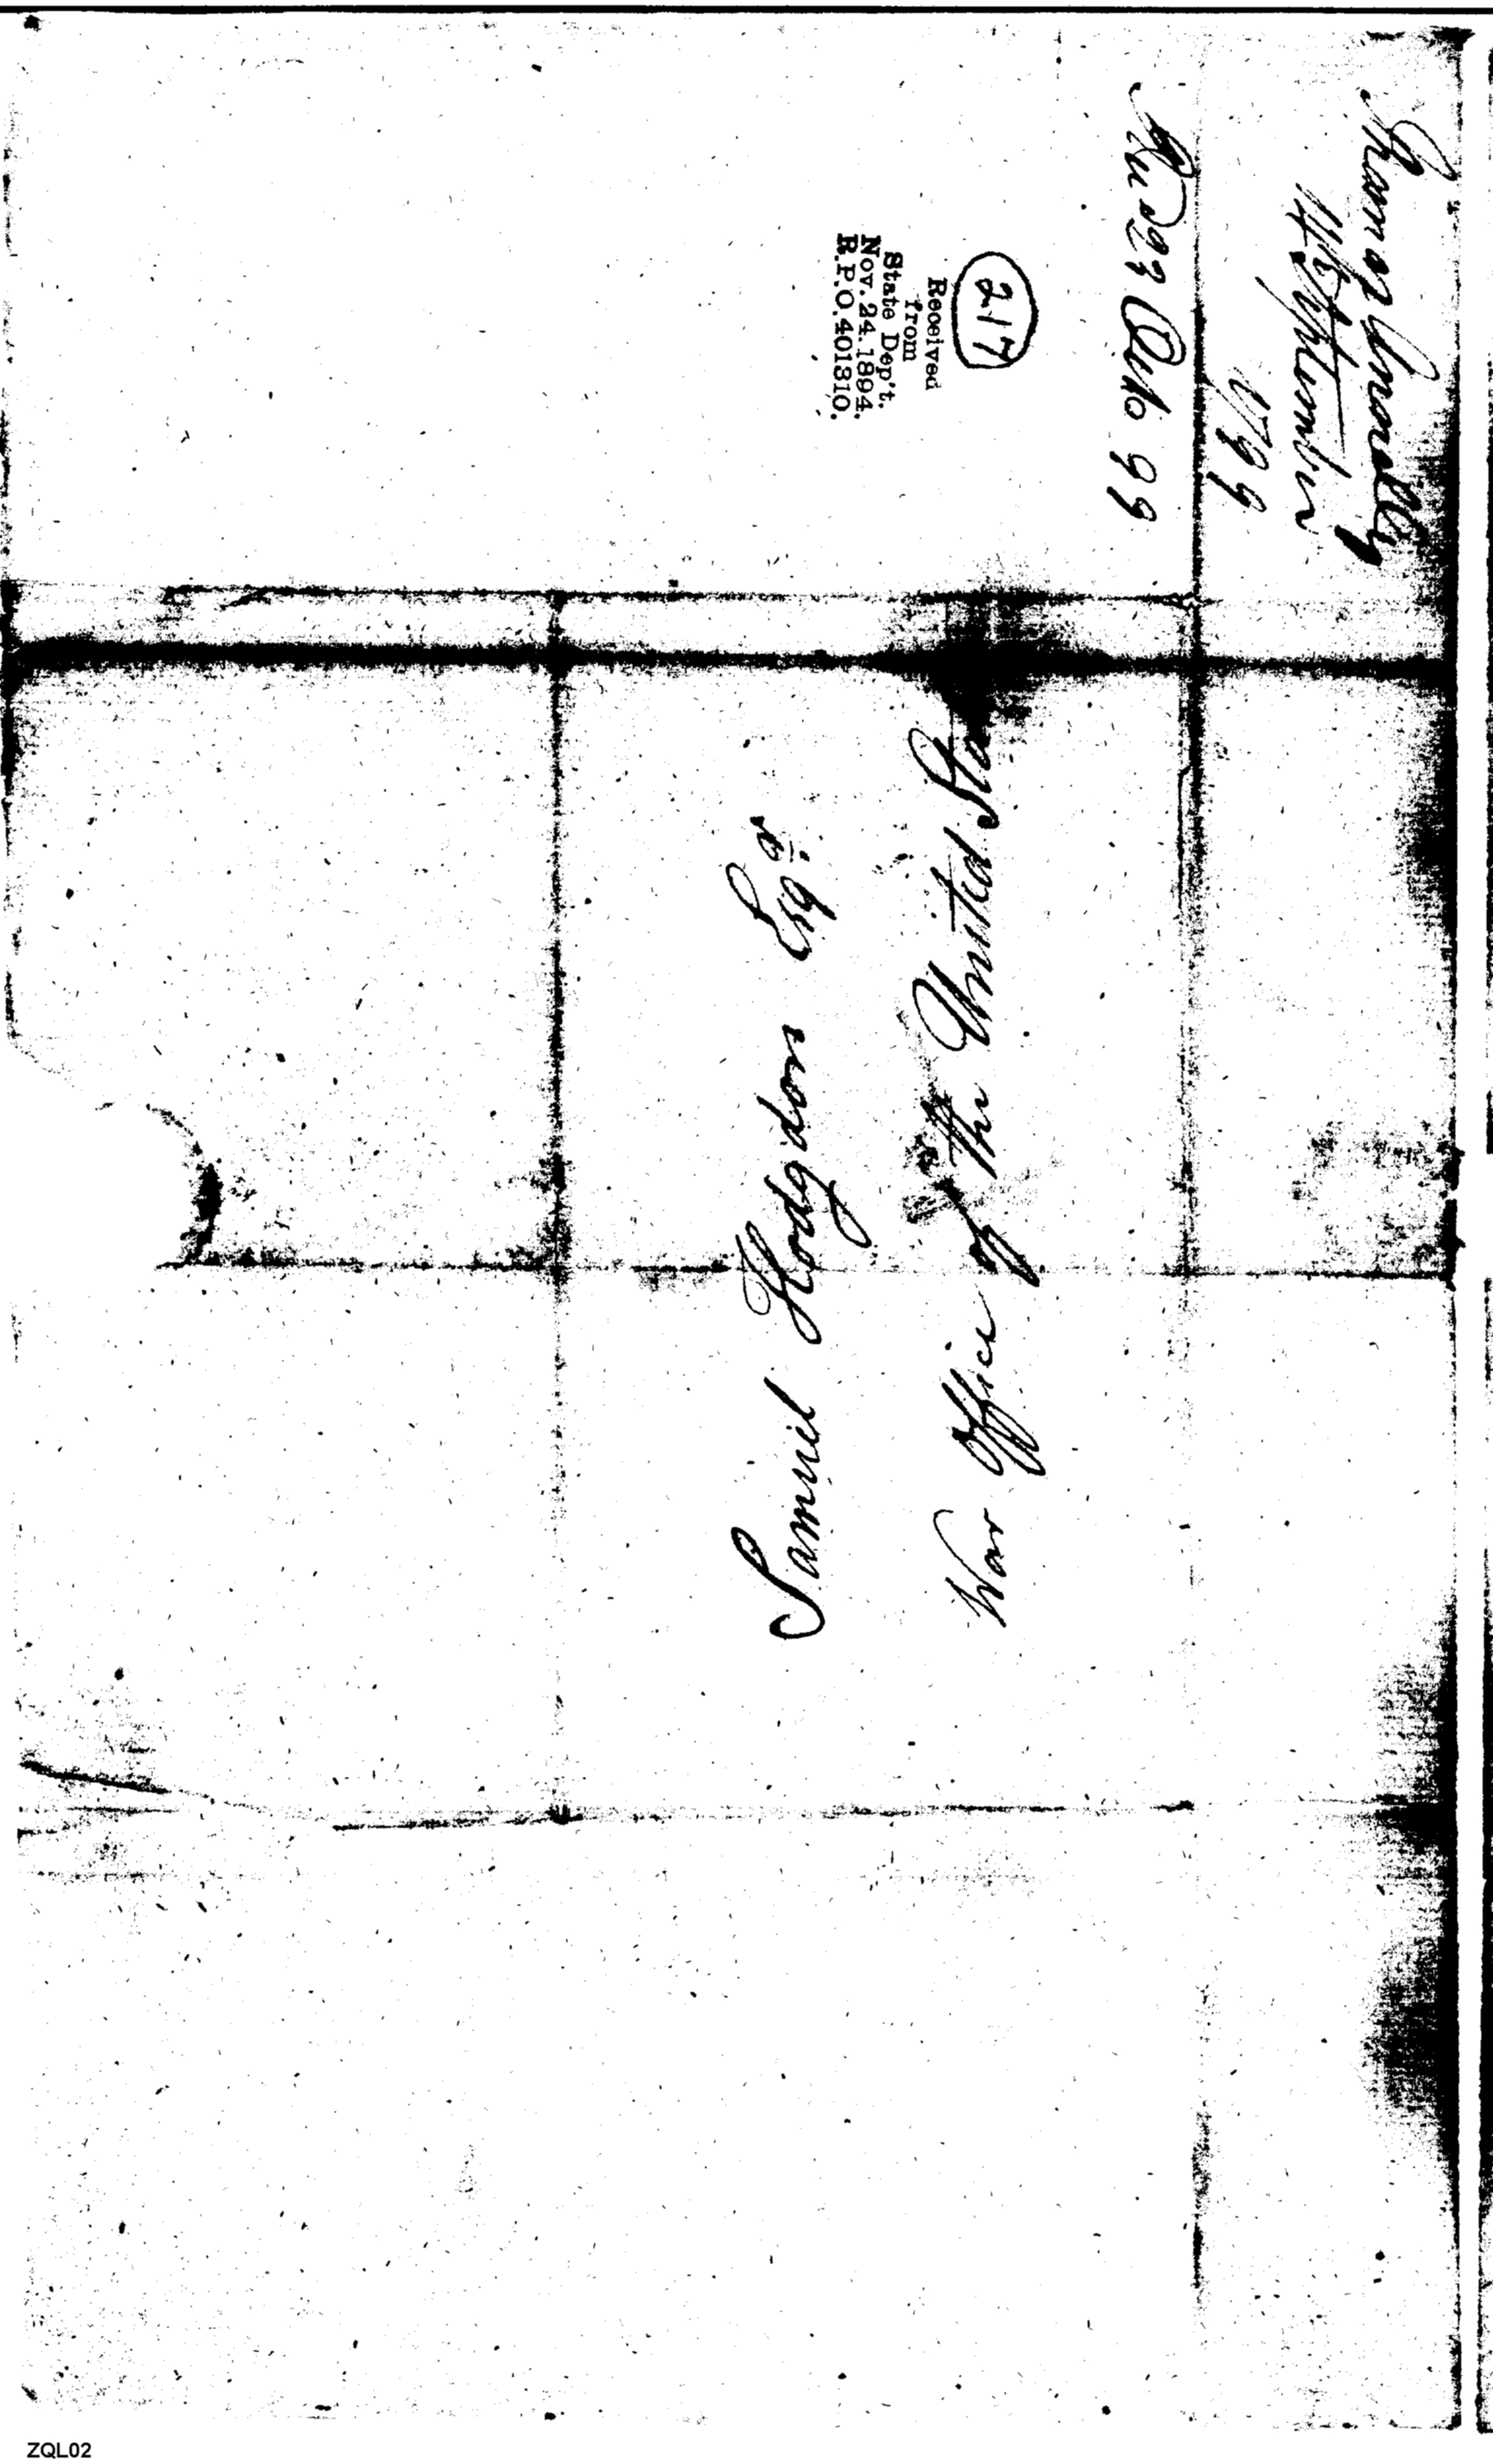 Thomas
14 September
1799
Rec'd 23 Octo 99
217
Received
from
State Dep't.
Nov. 24. 1894.
R.P.O. 401310.
Samuel Hodgdon Esqr.
War Office of the United Sta
ZQL02